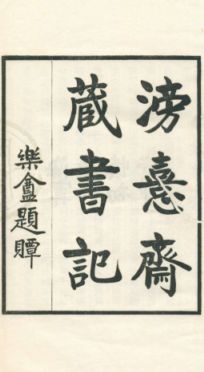 滂憙齋
藏書記
樂盦題䪜